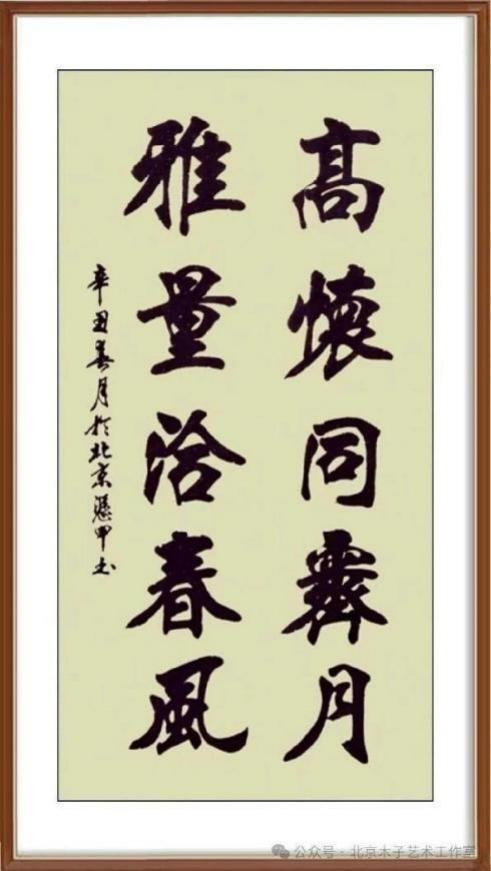 高懷同霽月
雅量洽春風
辛丑春月於北京甲书
公众号 · 北京木子艺术工作室